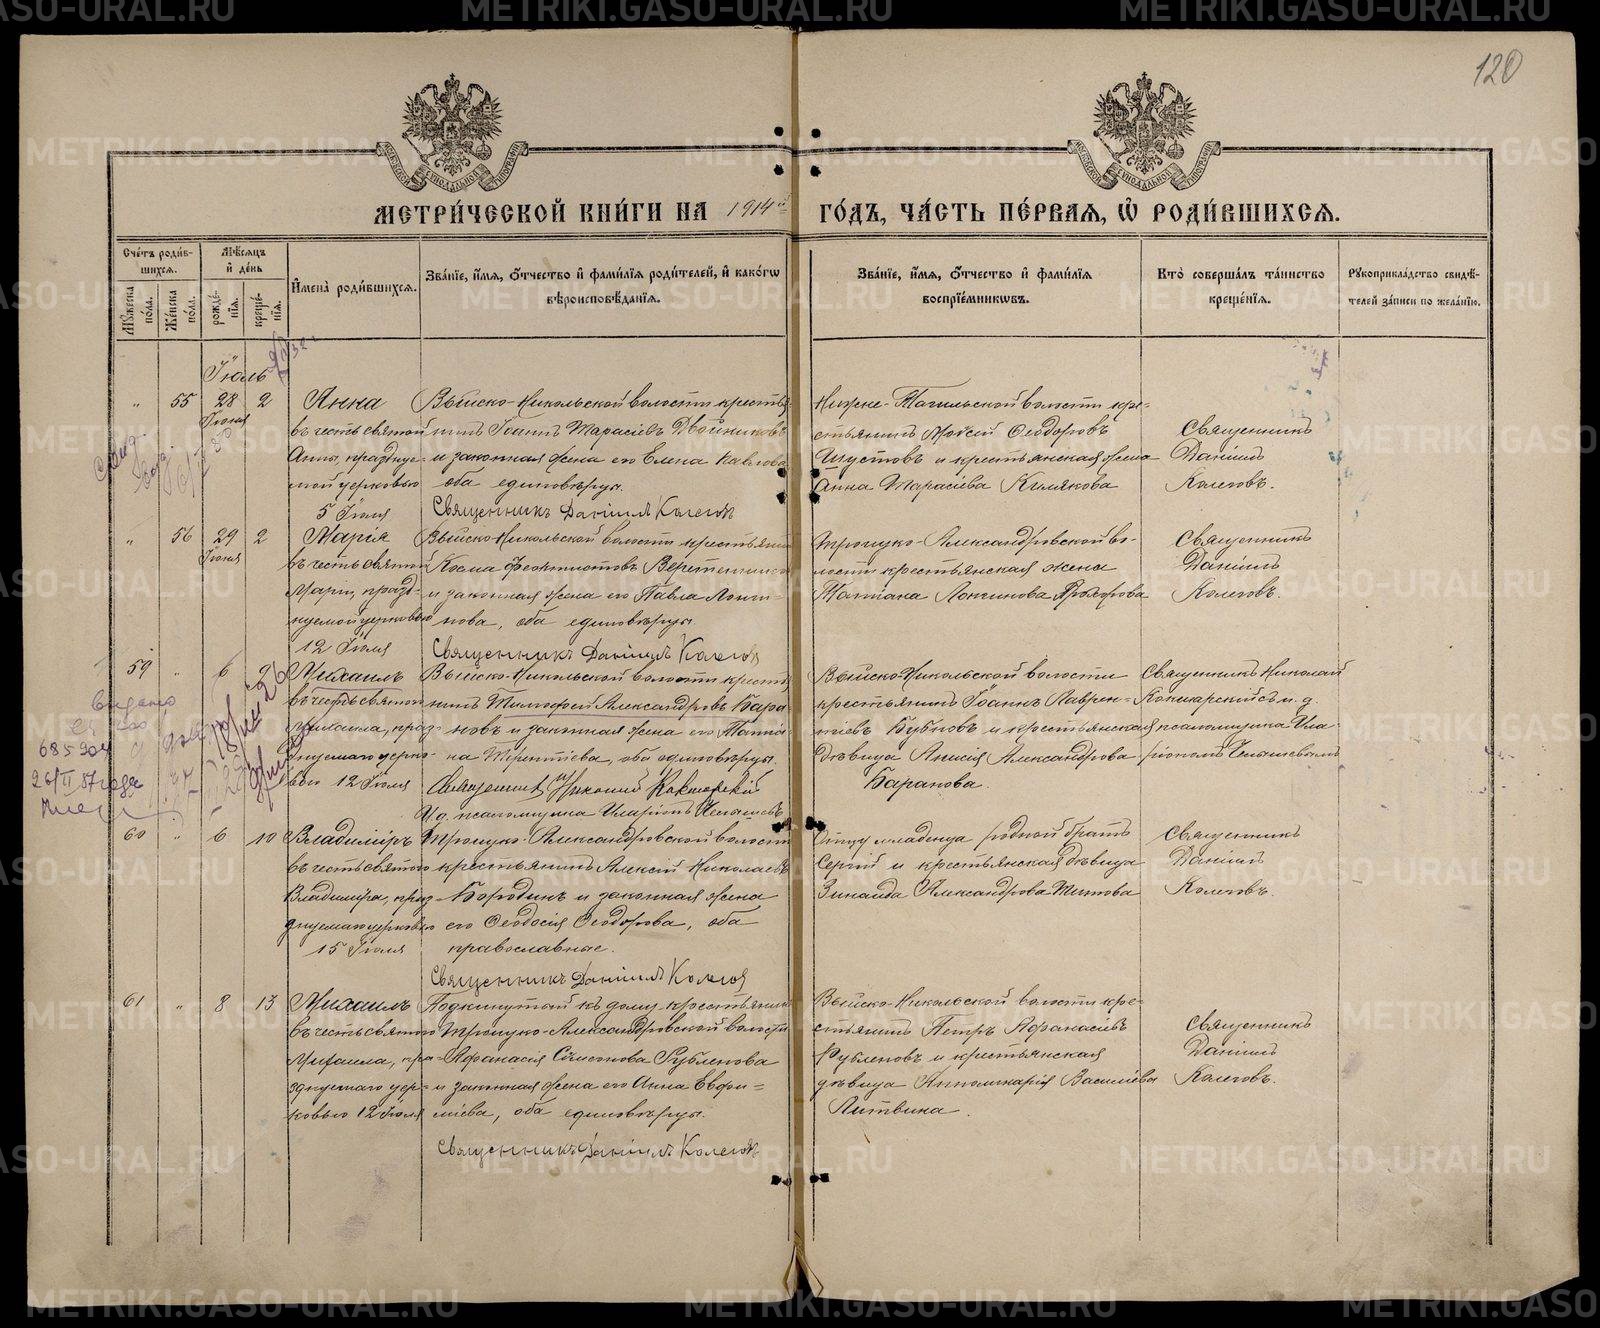 120
МЕТРИ́ЧЕСКОЙ КНИ́ГИ НА 1914й ГО́ДЪ, ЧА́СТЬ ПЕ́РВАѦ, Ѽ РОДИ́ВШИХСѦ.
Сче́тъ роди́в-
шихсѧ.
Мѣ́сѧцъ
и҆ де́нь
Му́жеска по́ла.
Же́нска по́ла.
рожде́-
нїѧ.
креще́-
нїѧ.
И҆мена̀ роди́вшихсѧ.
Зва́нїе, и҆́мѧ, Ѻ҆́тчество и҆ фами́лїѧ роди́телей, и҆ како́гѡ
вѣроисповѣ́данїѧ.
Зва́нїе, и҆́мѧ, Ѻ҆́тчество и҆ фами́лїѧ
воспрїе́мникѡвъ.
Кто̀ соверша́лъ та́инство
креще́нїѧ.
Рукоприкла́дство свидѣ́-
телей за́писи по жела́нїю.
Іюль
" 55 28 2
Іюня
Анна
въ честь святой
Анны, празднуе-
мой церковью
5 Іюля
Выйско-Никольской волости крестья-
нинъ Іоаннъ Тарасіевъ Двойниковъ
и законная жена его Елена Павлова
оба единовѣрцы.
Священникъ Даніилъ Колеговъ
Нижне-Тагильской волости кре-
стьянинъ Моѵсей Ѳеодоровъ
Шустовъ и крестьянская жена
Анна Тарасіева
Священникъ
Даніилъ
Колеговъ.
" 56 29 2
Іюня
Марія
въ честь святой
Маріи, празд-
нуемой церковью
12 Іюля
Выйско-Никольской волости крестьянинъ
Косма
и законная жена его Павла Логги-
нова, оба единовѣрцы
Священникъ Даніилъ Колеговъ
Троицко-Александровской во-
лости крестьянская жена
Татіана Логгинова
Священникъ
Даніилъ
Колеговъ.
59 " 6 26
Михаилъ
въ честь святого
Михаила, праз-
днуемаго церко-
вью 12 Іюля
Выйско-Никольской волости крестья-
нинъ Тимофей Александровъ Бара-
новъ и законная жена его Татіа-
на Терентіева, оба единовѣрцы.
Священникъ Николай
И.д. псаломщика Иларіонъ
Выйско-Никольской волости
крестьянинъ Іоаннъ Лаврен-
тіевъ Бубновъ и крестьянская
дѣвица Анисія Александрова
Баранова.
Священникъ Николай
и. д.
псаломщика Ила-
ріономъ
685904
26/II 57 года
60 " 6 10
Владиміръ
въ честь святого
Владиміра, праз-
днуемаго церковью
15 Іюля
Троицко-Александровской волости
крестьянинъ Алексій Николаевъ
Бородинъ и законная жена
его Ѳеодосія Ѳеодорова, оба
православные.
Священникъ Даніилъ Колеговъ
Отцу младенца родной братъ
Сергій и крестьянская дѣвица
Зинаида Александрова Титова
Священникъ
Даніилъ
Колеговъ.
61 " 8 13
Михаилъ
въ честь святого
Михаила, пра-
зднуемаго цер-
ковью 12 Іюля
Подкинутый къ дому крестьянина
Троицко-Александровской волости
Аѳанасія Симеонова Рубленова
и законная жена его Анна Евѳи-
міева, оба единовѣрцы.
Священникъ Даніилъ Колеговъ
Выйско-Никольской волости кре-
стьянинъ Петръ Аѳанасіевъ
Рубленовъ и крестьянская
дѣвица Аполлинарія Васильева
Литвина.
Священникъ
Даніилъ
Колеговъ.
METRIKI.GASO-URAL.RU